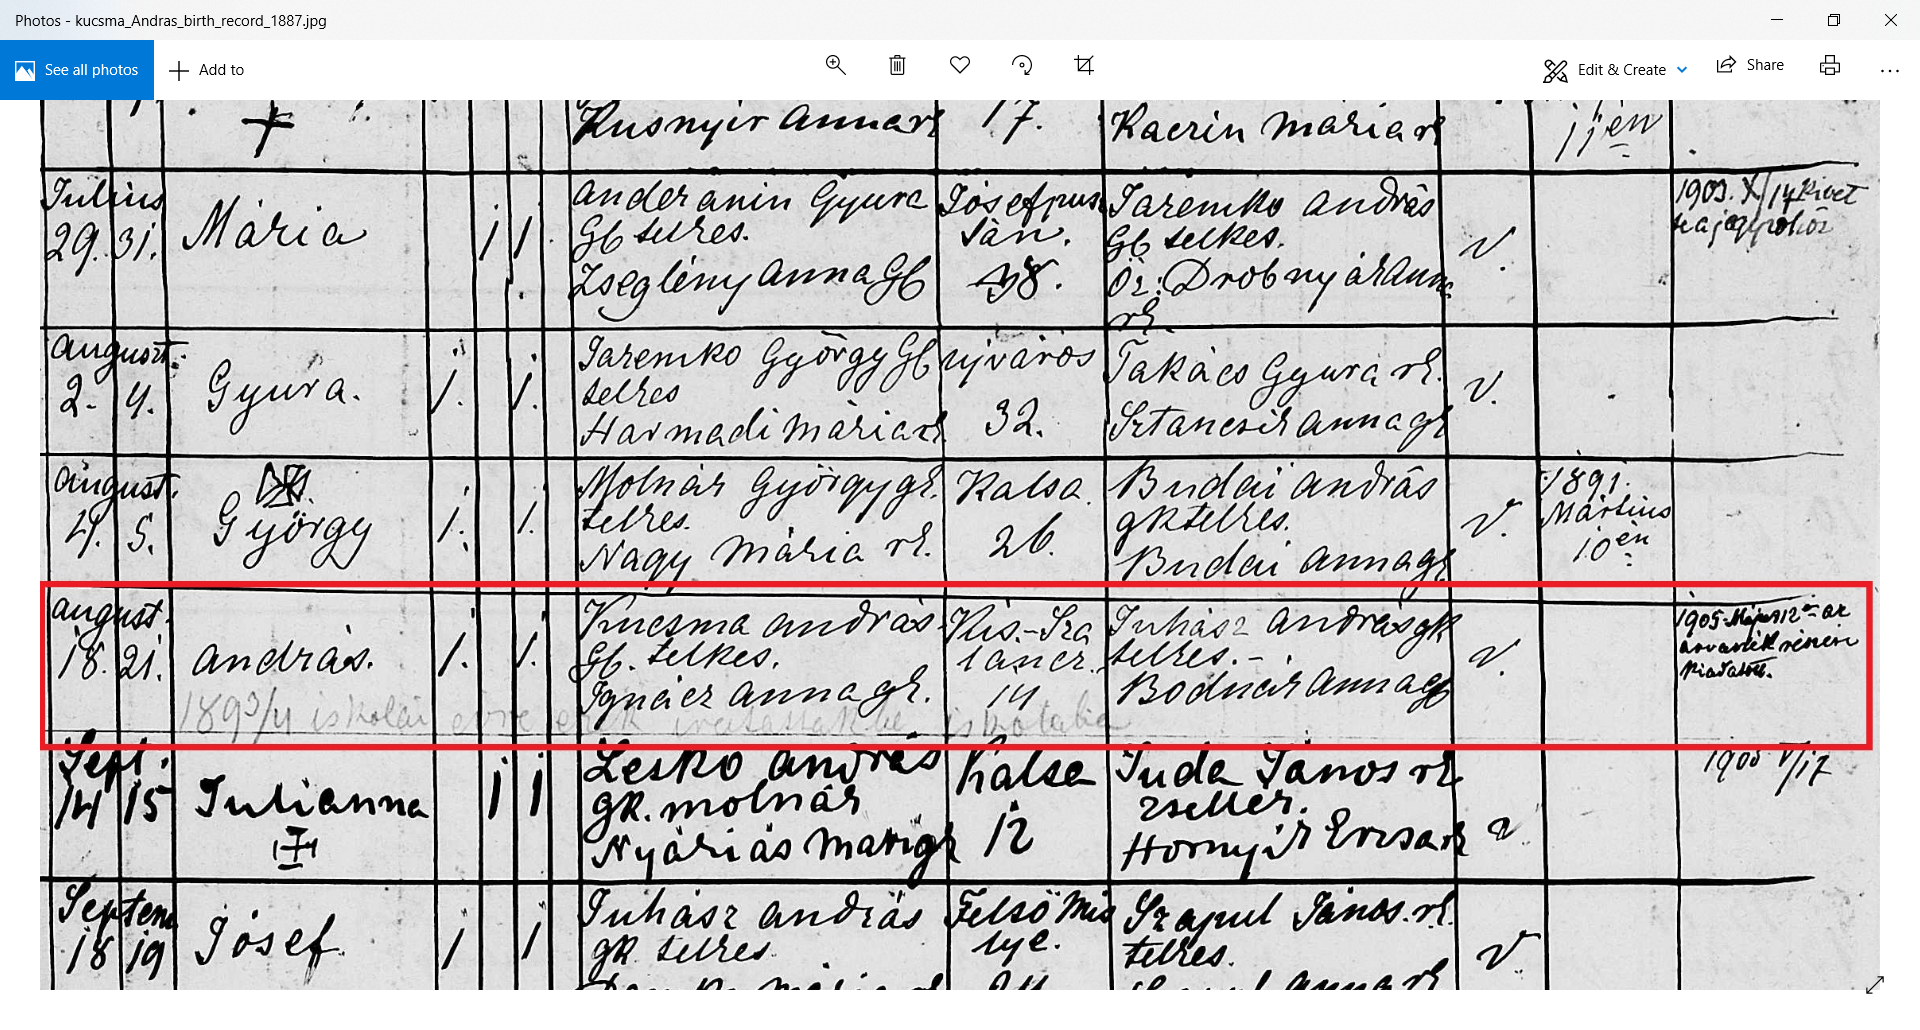 Photos - kucsma_Andras_birth_record_1887.jpg
See all photos
Add to
Edit & Create
Share
Kusnyir Anna rk
17.
Kacrin Mária rk
11 én
Julius
29. 31.
Mária
1 1
Anderanin Gyura
Gk telkes.
Zseglény Anna Gk
Jósefpus
tán.
38.
Jaremko András
Gk telkes.
Öz: Drobnyák Anna
rk.
v.
1903. X/14 kivet
August.
2. 4.
Gyura.
1. 1.
Jaremko György Gk
telkes
Harmadi Mária rk.
ujváros
32.
Takács Gyura rk.
Sztancsik Anna gk
v.
August.
4. 5.
György
1. 1.
Molnár György gk.
telkes.
Nagy Mária rk.
Kalsa
26.
Budai András
gk telkes.
Budai Anna gk
v.
1891.
Mártius
10 én
August.
18. 21.
András.
1. 1.
Kucsma András
Gk. telkes.
Ignácz Anna gk.
Kis-Sza
láncz.
14
Juhász András gk
telkes.-
Bodnár Anna gk
v.
1905 Május 12 én az
árvaszék részére
kiadatott.
1893/4 iskolai évre iskolába
Sept.
14 15
Julianna
1 1
Lesko András
gk. molnár
Nyáriás Mari gk
Kalsa
12
Juda János rk
zseller.
Hornyik Erzsa rk
v.
1905 V/17
Septem
18 19
Jósef
1 1
Juhász András
gk telkes.
Felső Mis
lye.
Szapul János rk.
telkes.
v